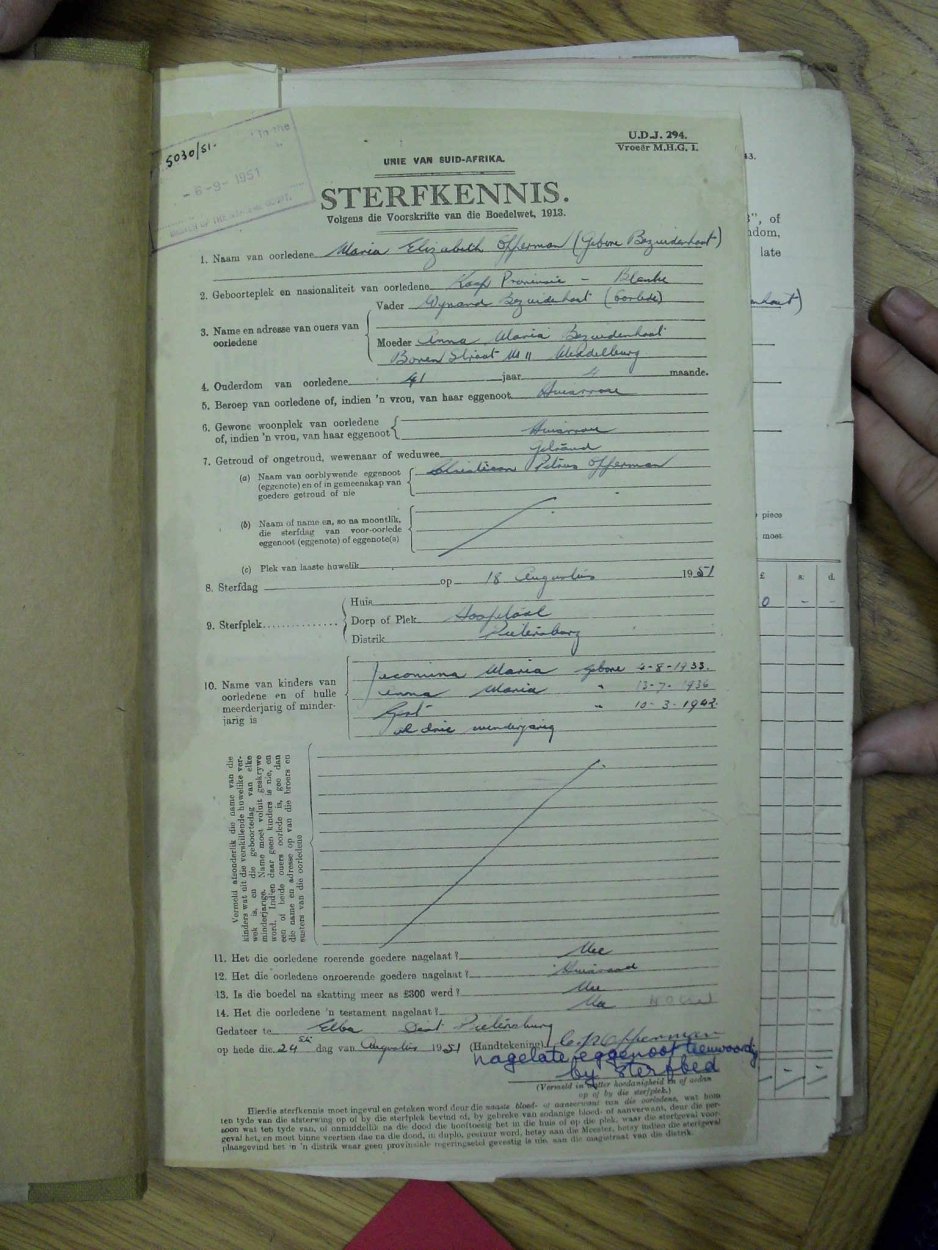 U.D.J. 294.
Vroeër M.H.G. 1.
5030/51.
in the
- 6-9-1951
UNIE VAN SUID-AFRIKA.
STERFKENNIS.
Volgens die Voorskrifte van die Boedelwet, 1913.
1. Naam van oorledene Maria Elizabeth Opperman (Gebore Bezuidenhout)
2. Geboorteplek en nasionaliteit van oorledene Kaap Provinsie - Blanke
3. Name en adresse van ouers van oorledene
Vader Wynand Bezuidenhout (oorlede)
Moeder Anna Maria Bezuidenhout
Boven Straat Middelburg
4. Ouderdom van oorledene 41 jaar 4 maande.
5. Beroep van oorledene of, indien 'n vrou, van haar eggenoot Huisvrou
6. Gewone woonplek van oorledene
of, indien 'n vrou, van haar eggenoot Huisvrou
7. Getroud of ongetroud, wewenaar of weduwee Getroud
(a) Naam van oorblywende eggenoot
(eggenote) en of in gemeenskap van
goedere getroud of nie
Christiaan Petrus Opperman
(b) Naam of name en, so na moontlik,
die sterfdag van voor-oorlede
eggenoot (eggenote) of eggenote(s)
(c) Plek van laaste huwelik
8. Sterfdag op 18 Augustus 1951
9. Sterfplek
Huis
Dorp of Plek Hospitaal
Distrik Pietersburg
10. Name van kinders van
oorledene en of hulle
meerderjarig of minder-
jarig is
Jacomina Maria gebore 4-8-1933.
Anna Maria " 13-7-1936
Gert " 10-3-1942
al drie minderjarig
Vermeld afsonderlik die name van die
kinders wat uit die verskillende huwelike ver-
wek is, en die geboortedag van elke
minderjarige. Name moet voluit geskrywe
word. Indien daar geen kinders is nie, en
een of beide ouers oorlede is, gee dan
die name en adresse op van die broers en
susters van die oorledene
11. Het die oorledene roerende goedere nagelaat? Nee
12. Het die oorledene onroerende goedere nagelaat? Huisraad
13. Is die boedel na skatting meer as £300 werd? Nee
14. Het die oorledene 'n testament nagelaat? Nee
Gedateer te Elba Pietersburg
op hede die 24 ste dag van Augustus 1951 (Handtekening) Opperman
nagelate eggenoot teenwoordig
by sterfbed
(Vermeld in watter hoedanigheid en of aedan
op of by die sterfplek.)
Hierdie sterfkennis moet ingevul en geteken word deur die naaste bloed- of aanverwant van die oorledene, wat hom
ten tyde van die afsterwing op of by die sterfplek bevind of, by gebreke van sodanige bloed- of aanverwant, deur die per-
soon wat ten tyde van, of onmiddellik na die dood die hooftoesig het in die huis of op die plek, waar die sterfgeval voor-
geval het, en moet binne veertien dae na die dood, in duplo, gestuur word, hetsy aan die Meester, hetsy indien die sterfgeval
plaasgevind het in 'n distrik waar geen provinsiale regeringsetel gevestig is nie, aan die magistraat van die distrik.
13.
", of
dom,
late
enhout)
piece
moet
£ s. d.
0 - -